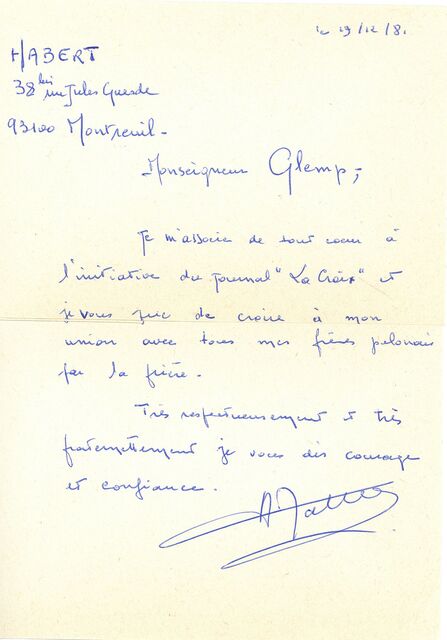 le 29/12/81
HABERT
38 bis rue Jules Guesde
93100 Montreuil-
Monseigneur Glemp,
Je m'associe de tout coeur à
l'initiative du Journal "La Croix" et
je vous prie de croire à mon
union avec tous mes frères polonais
par la prière.
Très respectueusement et très
fraternellement je vous dis courage
et confiance.